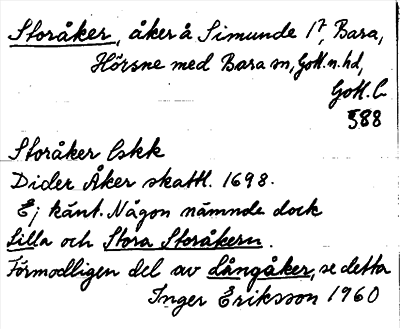 Storåker, åker å Simunde 1⁷, Bara,
Hörsne med Bara sn, Gotl. n. hd,
Gotl. l.
588
Storåker Cskk
Dider Åker skattl. 1698.
Ej känt. Någon nämnde dock
Lilla och Stora Storåkern.
Förmodligen del av Långåker, se detta
Inger Eriksson 1960